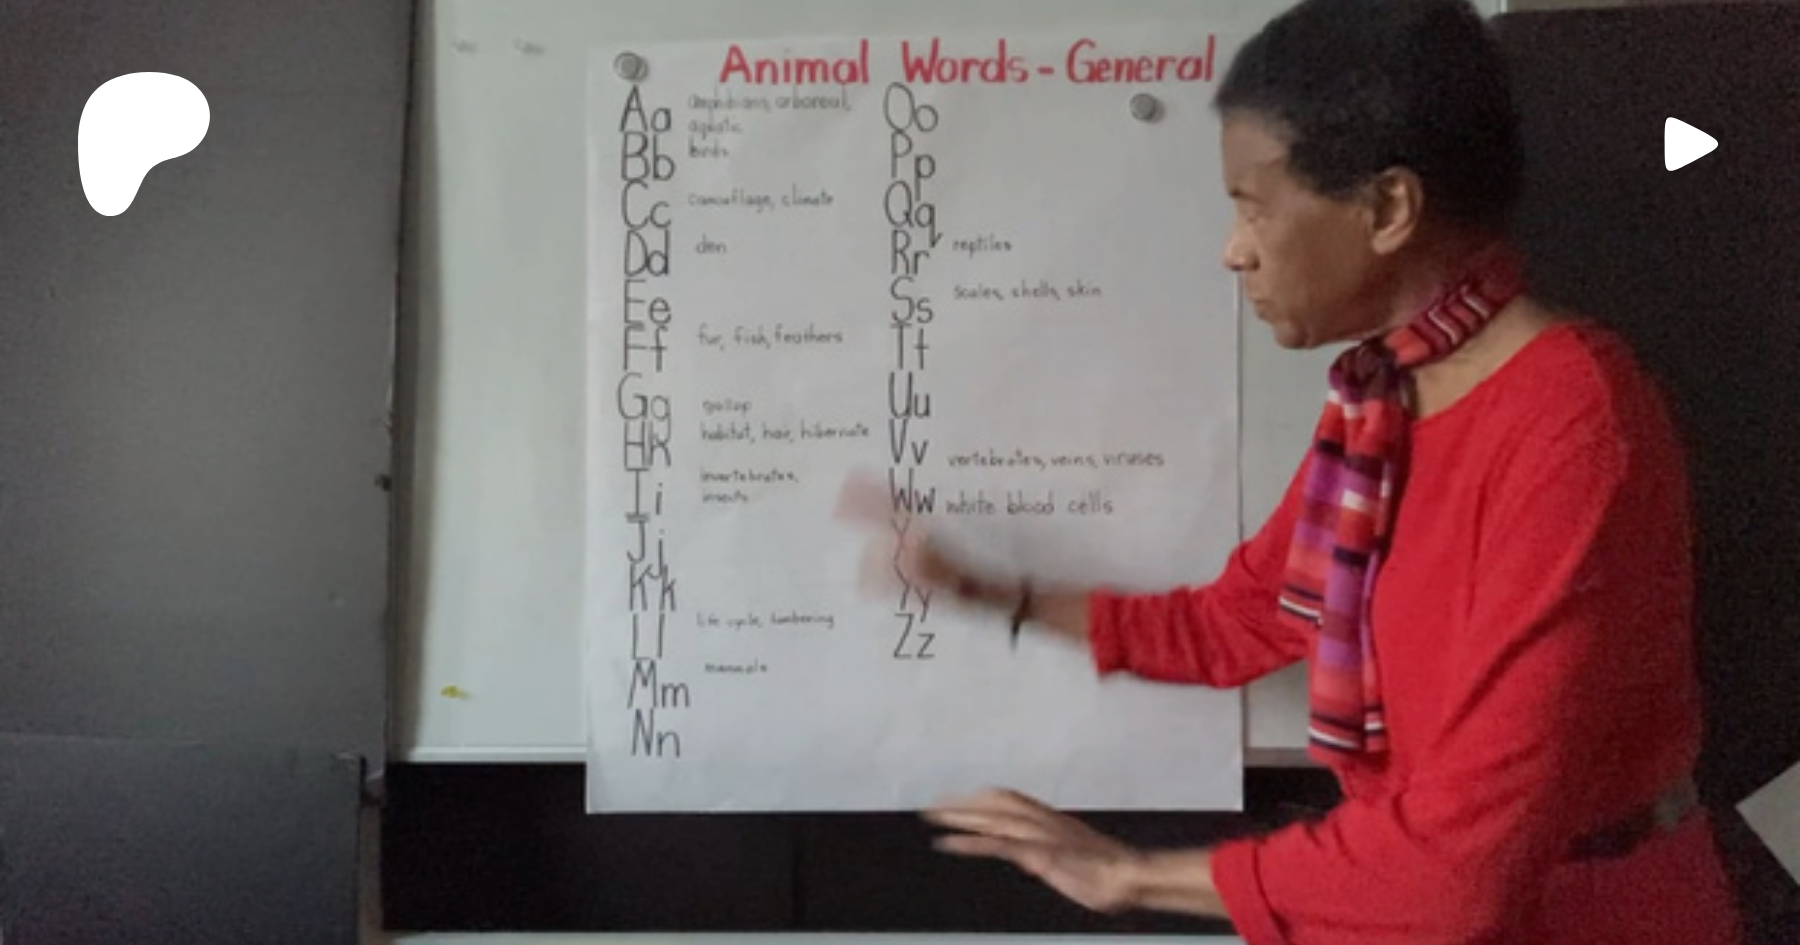 Animal Words - General
Aa amphibians, arboreal,
aquatic
Bb birds
Cc camouflage, climate
Dd den
Ee
Ff fur, fish, feathers
Gg gallop
Hh habitat, hair, hibernate
Ii invertebrates,
insects
Jj
Kk
Ll life cycle, lumbering
Mm mammals
Nn
Oo
Pp
Qq
Rr reptiles
Ss scales, shells, skin
Tt
Uu
Vv vertebrates, veins, viruses
Ww white blood cells
Yy
Zz